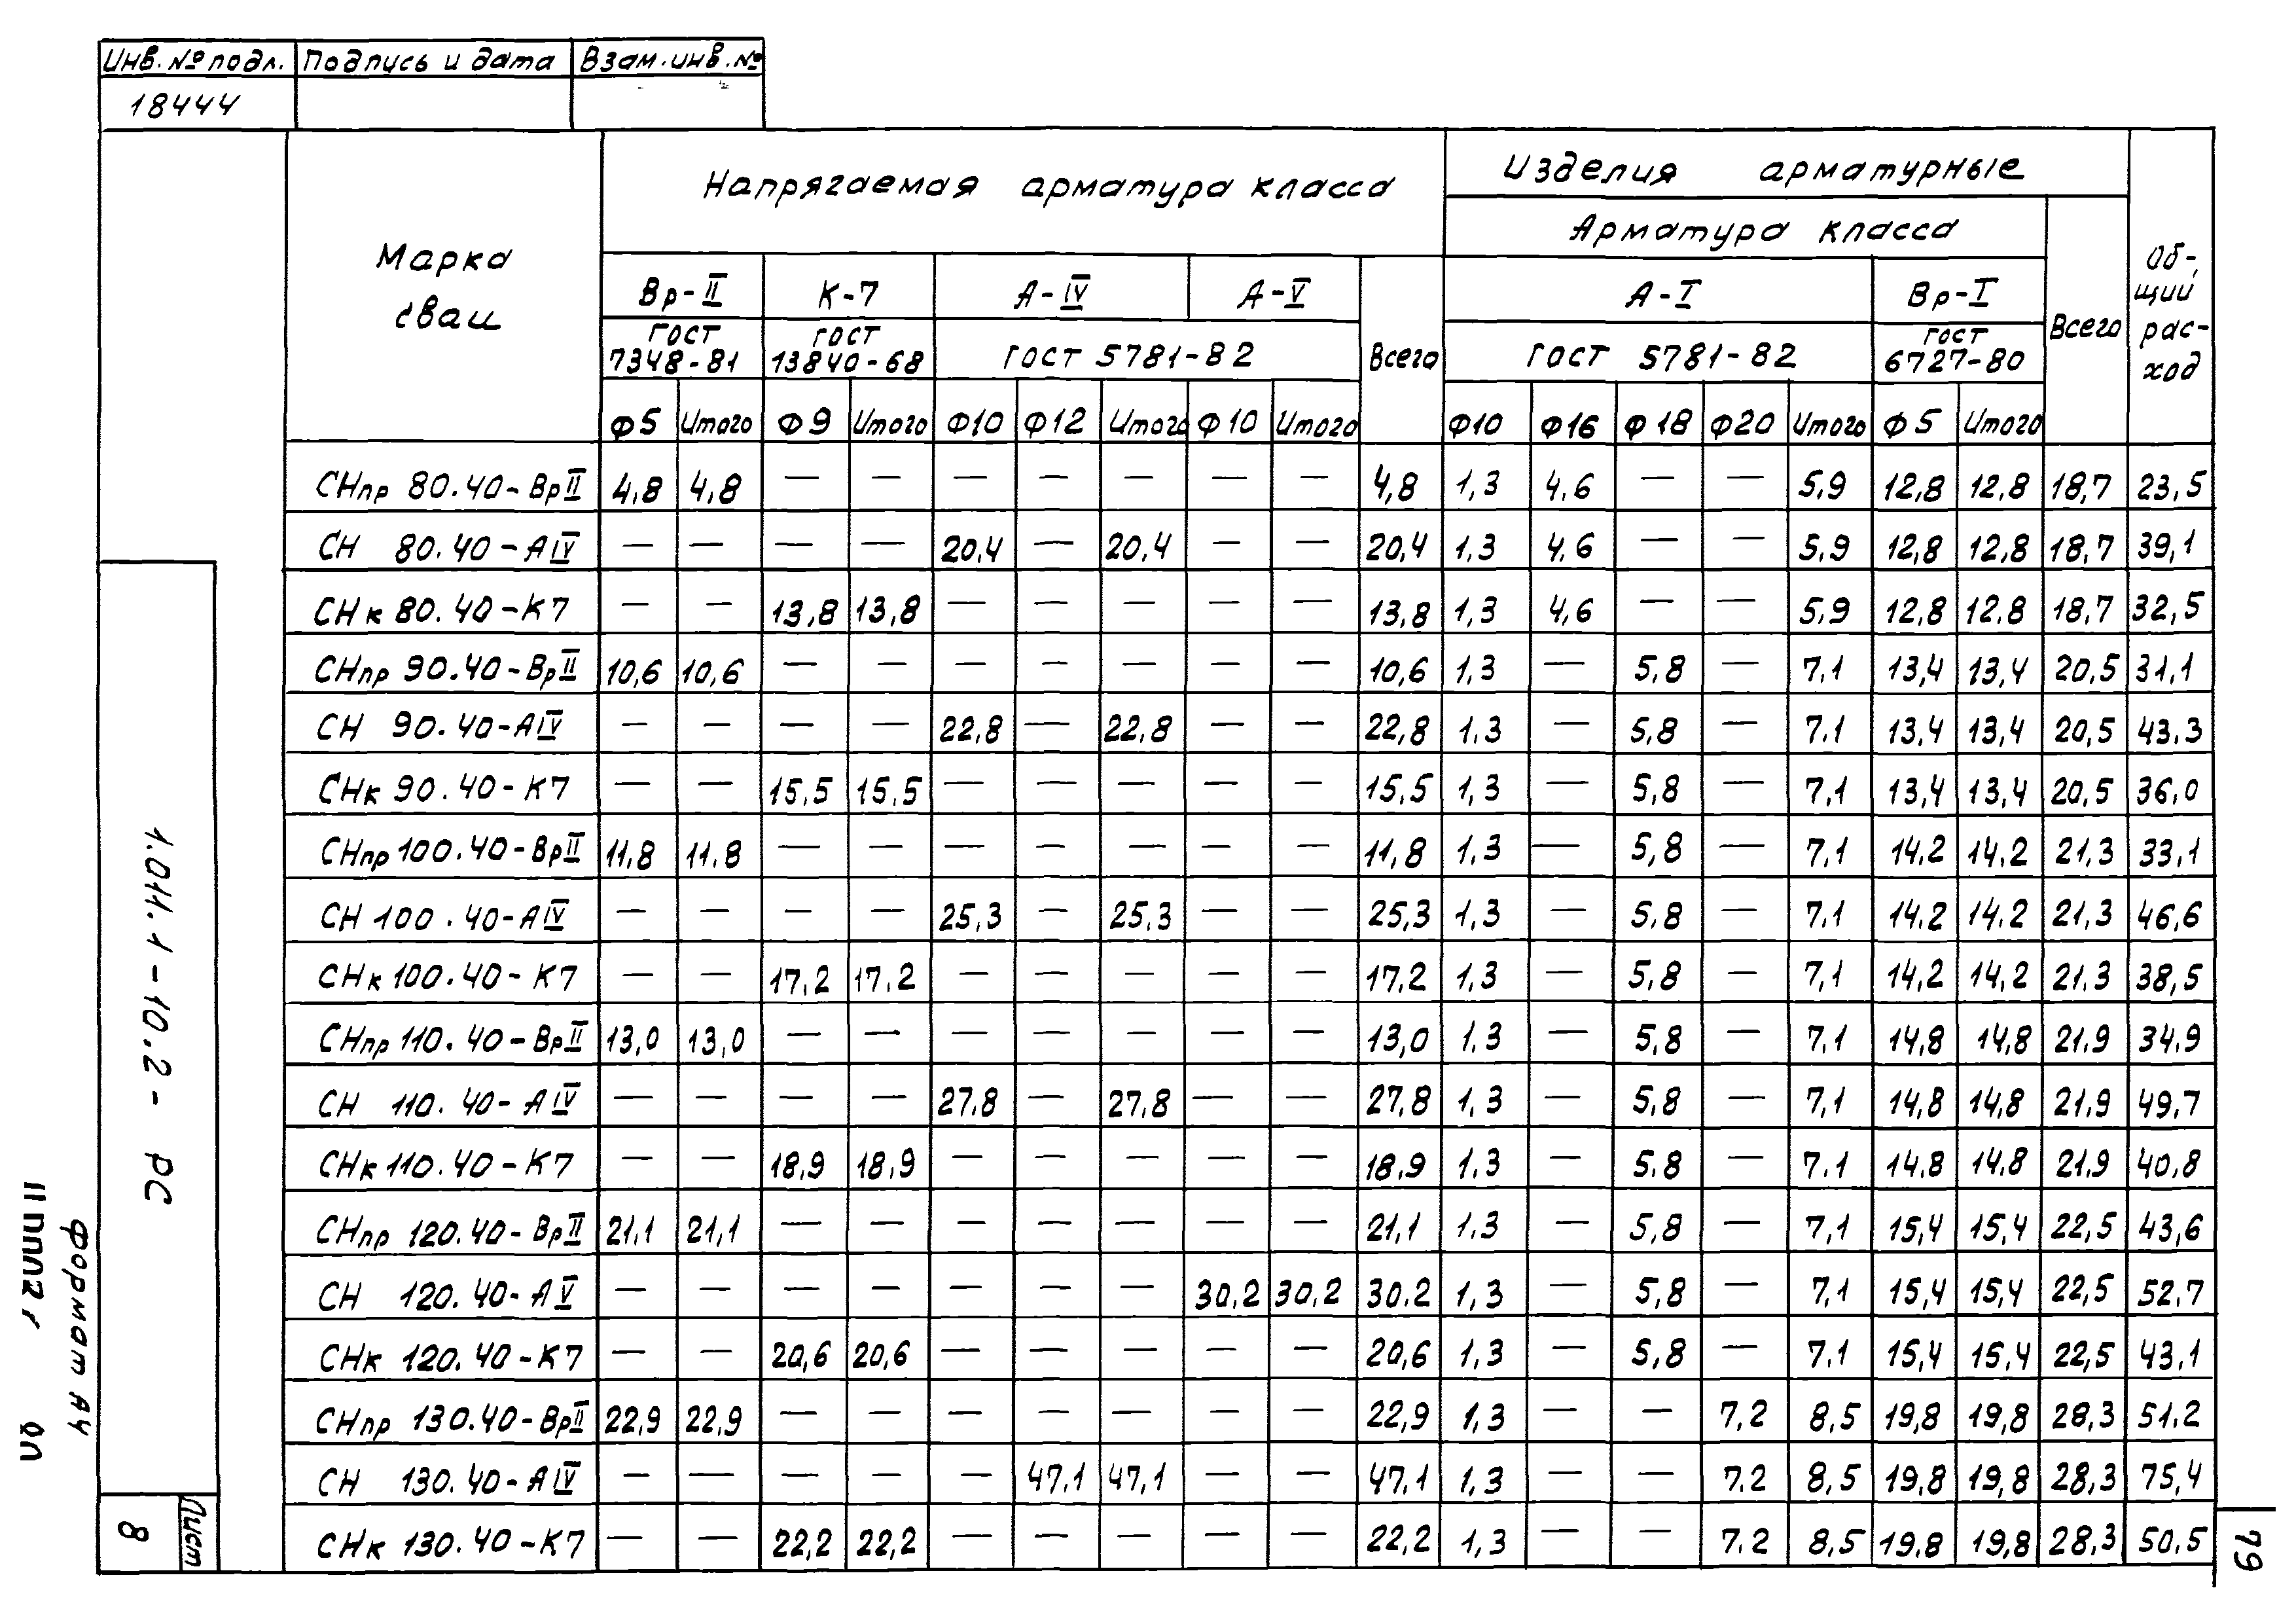 Инв. № подл. Подпись и дата Взам. инв. №
18444
Марка сваи
Напрягаемая арматура класса
Изделия арматурные
Арматура класса
Общий расход
Вр-II К-7 А-IV А-V Всего А-I Вр-I Всего
ГОСТ 7348-81 ГОСТ 13840-68 ГОСТ 5781-82 ГОСТ 5781-82 ГОСТ 6727-80
Ф5 Итого Ф9 Итого Ф10 Ф12 Итого Ф10 Итого Ф10 Ф16 Ф18 Ф20 Итого Ф5 Итого
СНпр 80.40-ВрII 4,8 4,8 — — — — — — — 4,8 1,3 4,6 — — 5,9 12,8 12,8 18,7 23,5
СН 80.40-АIV — — — — 20,4 — 20,4 — — 20,4 1,3 4,6 — — 5,9 12,8 12,8 18,7 39,1
СНк 80.40-К7 — — 13,8 13,8 — — — — — 13,8 1,3 4,6 — — 5,9 12,8 12.8 18,7 32,5
СНпр 90.40-ВрII 10,6 10,6 — — — — — — — 10,6 1,3 — 5,8 — 7,1 13,4 13,4 20,5 31,1
СН 90.40-АIV — — — — 22,8 — 22,8 — — 22,8 1.3 — 5,8 — 7.1 13,4 13,4 20,5 43.3
СНк 90.40-К7 — — 15,5 15,5 — — — — — 15,5 1,3 — 5,8 — 7,1 13,4 13,4 20,5 36,0
СНпр 100.40-ВрII 11,8 11.8 — — — — — — — 11,8 1,3 — 5,8 — 7,1 14,2 14,2 21,3 33,1
СН 100.40-АIV — — — — 25,3 — 25,3 — — 25,3 1,3 — 5,8 — 7,1 14,2 14,2 21,3 46,6
СНк 100.40-К7 — — 17,2 17,2 — — — — — 17,2 1,3 — 5,8 — 7,1 14,2 14,2 21,3 38,5
СНпр 110.40-ВрII 13,0 13,0 — — — — — — — 13,0 1,3 — 5,8 — 7,1 14,8 14,8 21,9 34,9
СН 110.40-АIV — — — — 27,8 — 27,8 — — 27,8 1,3 — 5,8 — 7,1 14,8 14,8 21,9 49,7
СНк 110.40-К7 — — 18,9 18,9 — — — — — 18,9 1,3 — 5,8 — 7,1 14,8 14,8 21,9 40,8
СНпр 120.40-ВрII 21,1 21,1 — — — — — — — 21,1 1,3 — 5,8 — 7,1 15,4 15,4 22,5 43,6
СН 120.40-АV — — — — — — — 30,2 30,2 30,2 1,3 — 5,8 — 7,1 15,4 15,4 22,5 52,7
СНк 120.40-К7 — — 20,6 20,6 — — — — — 20,6 1,3 — 5,8 — 7,1 15,4 15,4 22,5 43,1
СНпр 130.40-ВрII 22,9 22,9 — — — — — — — 22,9 1,3 — — 7,2 8,5 19,8 19,8 28,3 51,2
СН 130.40-АIV — — — — — 47,1 47,1 — — 47,1 1,3 — — 7,2 8,5 19,8 19,8 28,3 75,4
СНк 130.40-К7 — — 22,2 22,2 — — — — — 22,2 1,3 — — 7,2 8,5 19,8 19,8 28,3 50,5
1.011.1-10.2- РС
Лист
8
формат А4
79